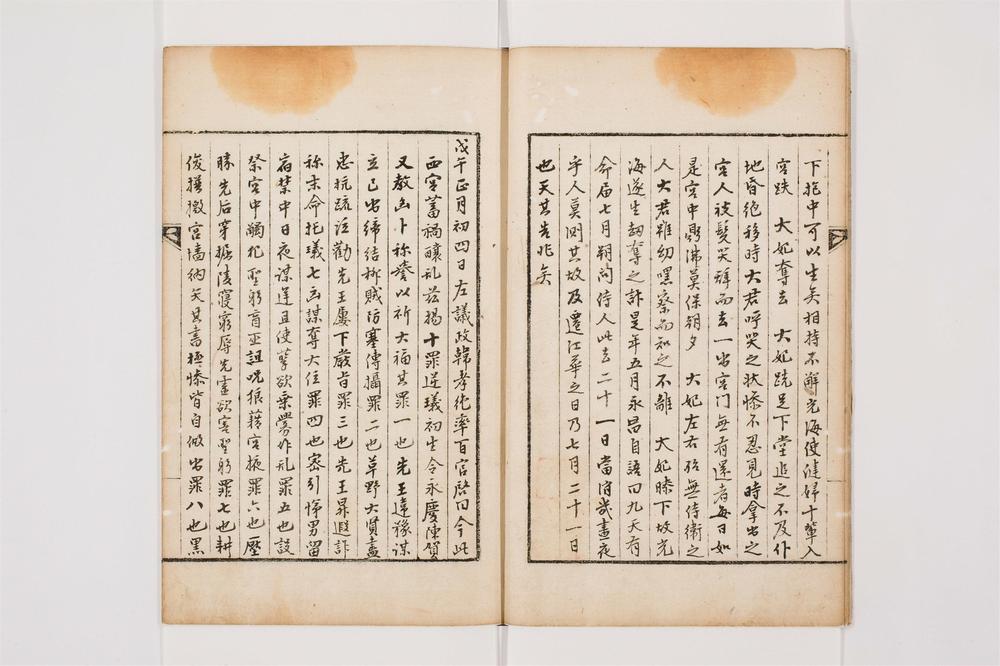 下抱中可以生矣相持不解光海使健婦十輩入
宮跌 大妃奪去 大妃跣足下堂追之不及仆
地昏絶移時大君呼哭之状慘不忍見時拿出之
宮人被髮哭擗而去一出宮門無有還者每日如
是宮中鼎沸莫保朝夕 大妃左右殆無侍衛之
人大君雖幼嘿察而知之不離 大妃膝下故光
海遂生劫奪之計是年五月永昌自語曰九天有
命屆七月朔問侍人此去二十一日當消幾晝夜
乎人莫測其故及遷江華之日乃七月二十一日
也天其告兆矣
戊午正月初四日左議政韓孝純率百官啓曰今此
西宮蓄禍釀乱玆揚十罪逆㼁初生令永慶陳賀
又敎凶卜称譽以祈大福其罪一也先王違豫謀
立己出締結柳賊防塞傳攝罪二也草野大賢盡
忠抗疏泣勸先王屢下嚴旨罪三也先王昇遐詐
称末命托㼁七凶謀奪大位罪四也密引悌男留
宿禁中日夜謀逆且使孽欲乗釁作乱罪五也設
祭宮中觸犯聖躬盲巫詛呪狼藉宮掖罪六也壓
勝先后穿掘陵寢窮辱先靈欲害聖躬罪七也耕
俊㨾檄宮墻納矢其書極慘皆自做出罪八也黑